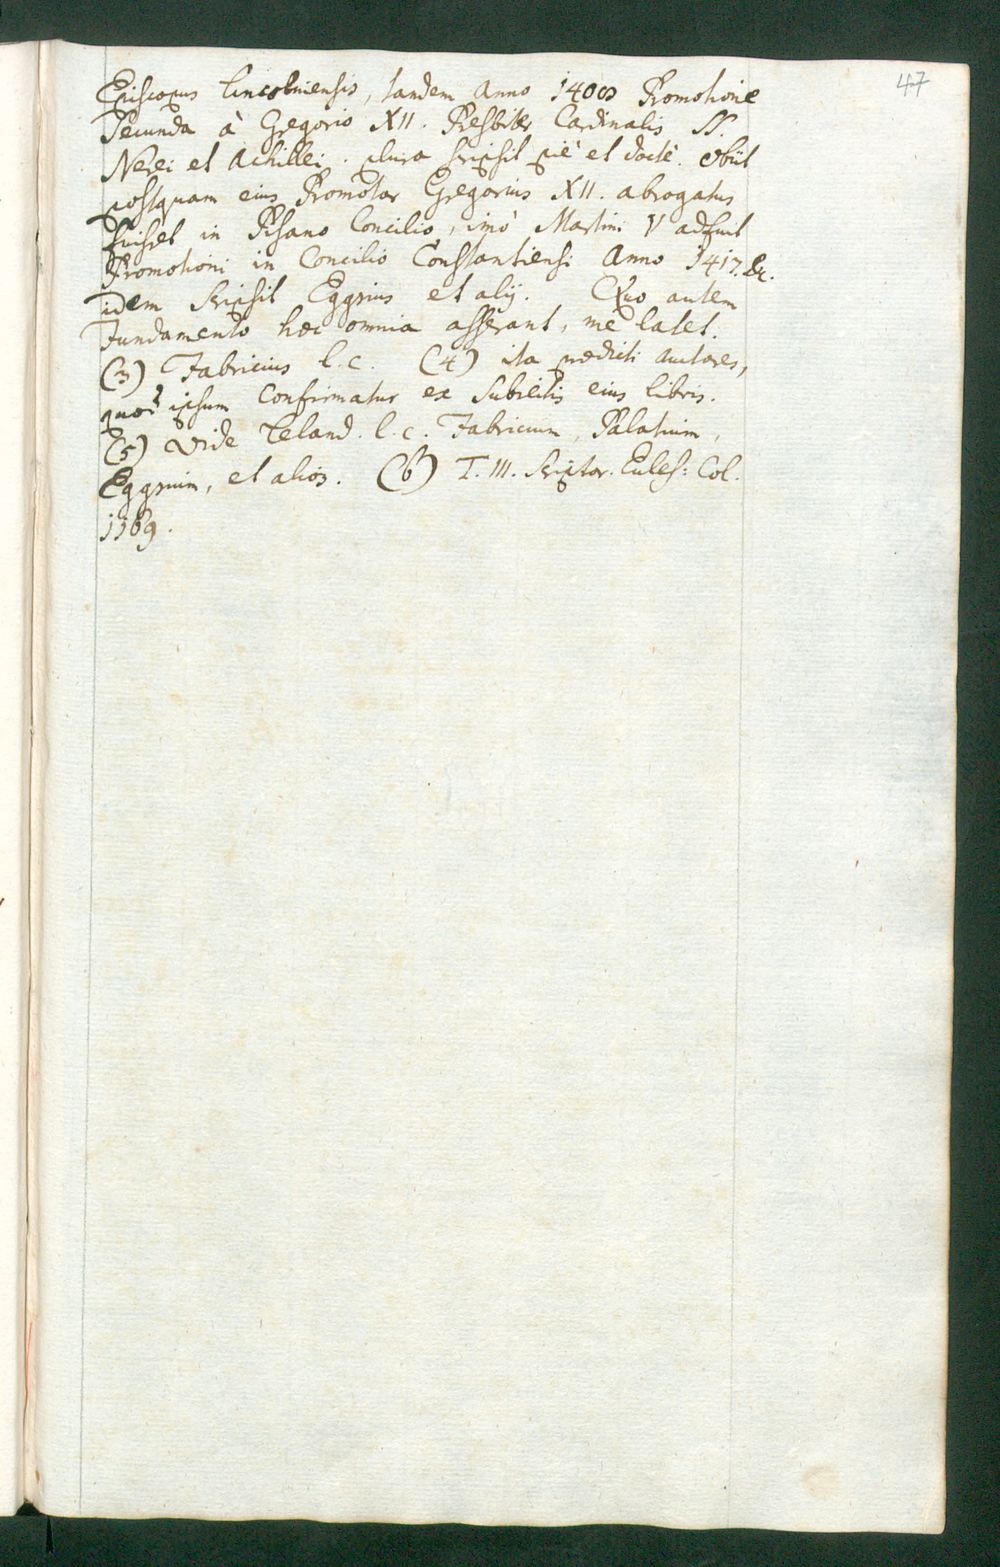 47
Episcopus Lincolniensis, tandem Anno 1408 Promotione
Secunda à Gregorio XII. Presbiter Cardinalis SS.
Nerei et Achillei. plura scripsit piè et doctè. obiit
postquam eius Promotor Gregorius XII. abrogatus
fuisset in Pisano Concilio, imò Martini V adfuit
Promotioni in Concilio Constantiensi Anno 1417. &c.
idem scripsit Eggsius et alij. Quo autem
Fundamento hæc omnia asserant, me latet.
(3) Fabricius l. c. (4) ita prædicti Auctores,
quod ipsum Confirmatur ex Subiectis eius libris.
(5) Vide Leland. l. c. Fabricium, Palatium,
Eggsium, et alios. (6) T. III. Scriptor. Eccles: Col.
1169.